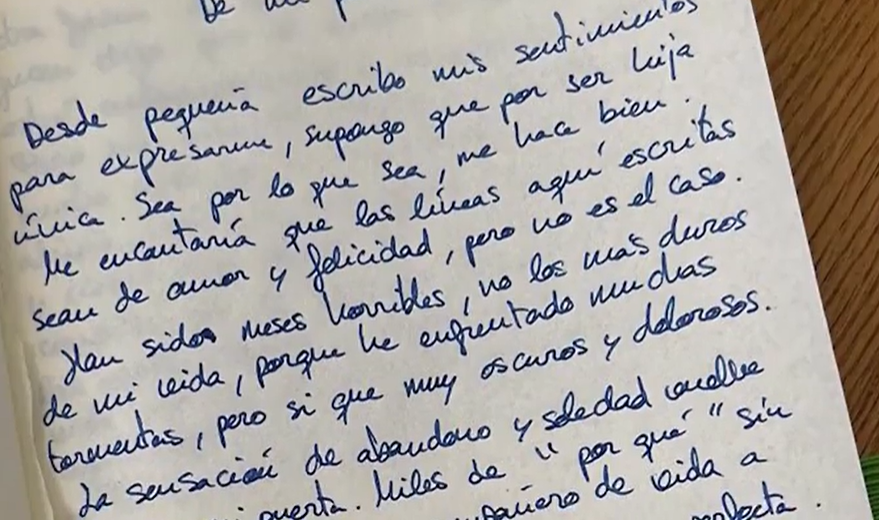 De mi
Desde pequeña escribo mis sentimientos
para expresarme, supongo que por ser hija
única. Sea por lo que sea, me hace bien.
Me encantaría que las líneas aquí escritas
sean de amor y felicidad, pero no es el caso.
Han sido meses horribles, no los más duros
de mi vida, porque he enfrentado muchas
tormentas, pero si que muy oscuros y dolorosos.
La sensación de abandono y soledad vuelve
puerta. Miles de "por qué" sin
de vida a
perfecta.